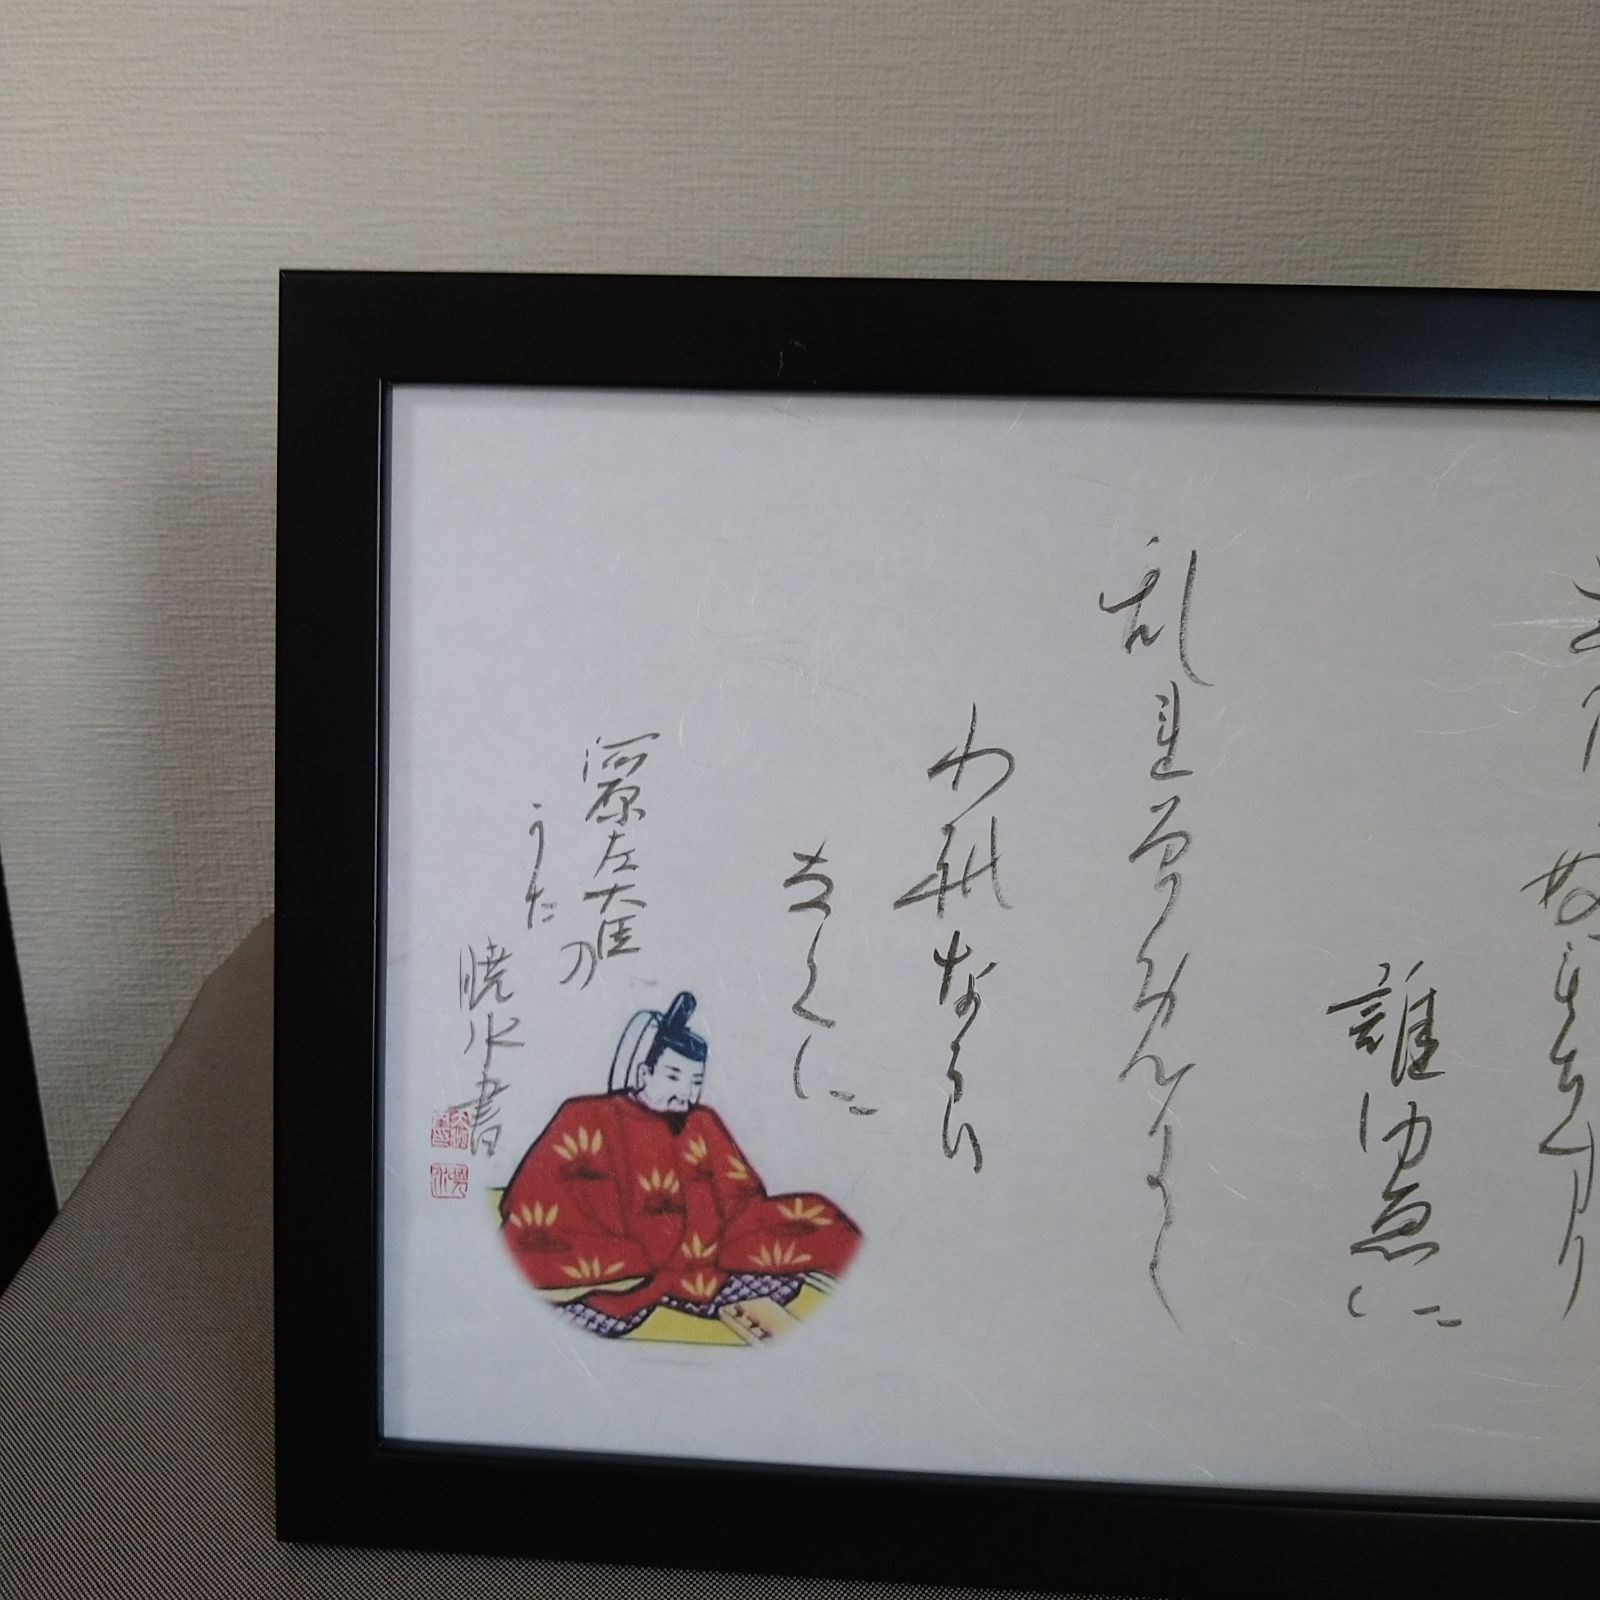 誰ゆゑに
乱れそめにし
われなら
なくに
河原左大臣の
うた
暁水書